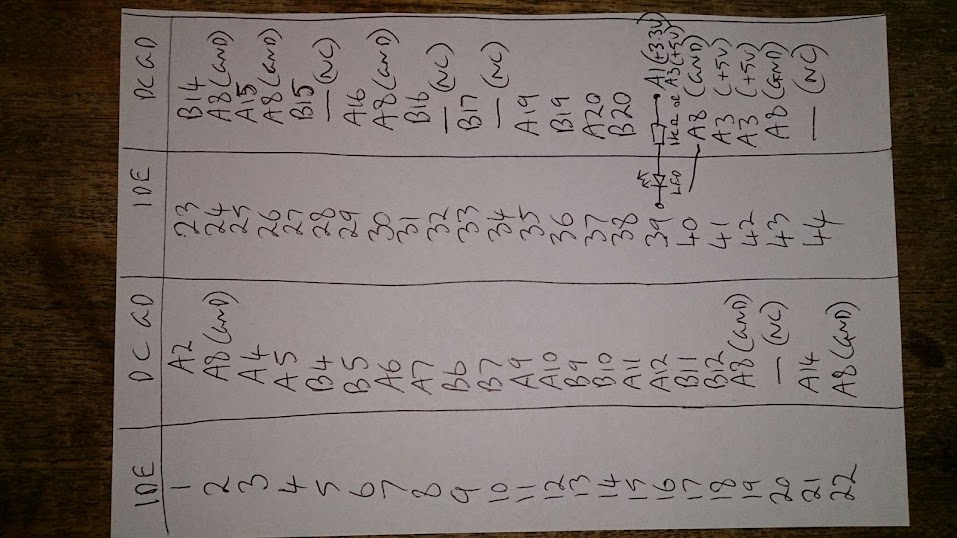 IDE DC GD IDE DC GD
1 A2 23 B14
2 A8 (GND) 24 A8 (GND)
3 A4 25 A15
4 A5 26 A8 (GND)
5 B4 27 B15
6 B5 28 — (NC)
7 A6 29 A16
8 A7 30 A8 (GND)
9 B6 31 B16
10 B7 32 — (NC)
11 A9 33 B17
12 A10 34 — (NC)
13 B9 35 A19
14 B10 36 B19
15 A11 37 A20
16 A12 38 B20
17 B11 39 A1 (+3.3V)
LED 1kΩ or A3 (+5V)
18 B12 40 — A8 (GND)
19 A8 (GND) 41 A3 (+5V)
20 — (NC) 42 A3 (+5V)
21 A14 43 A8 (GND)
22 A8 (GND) 44 — (NC)